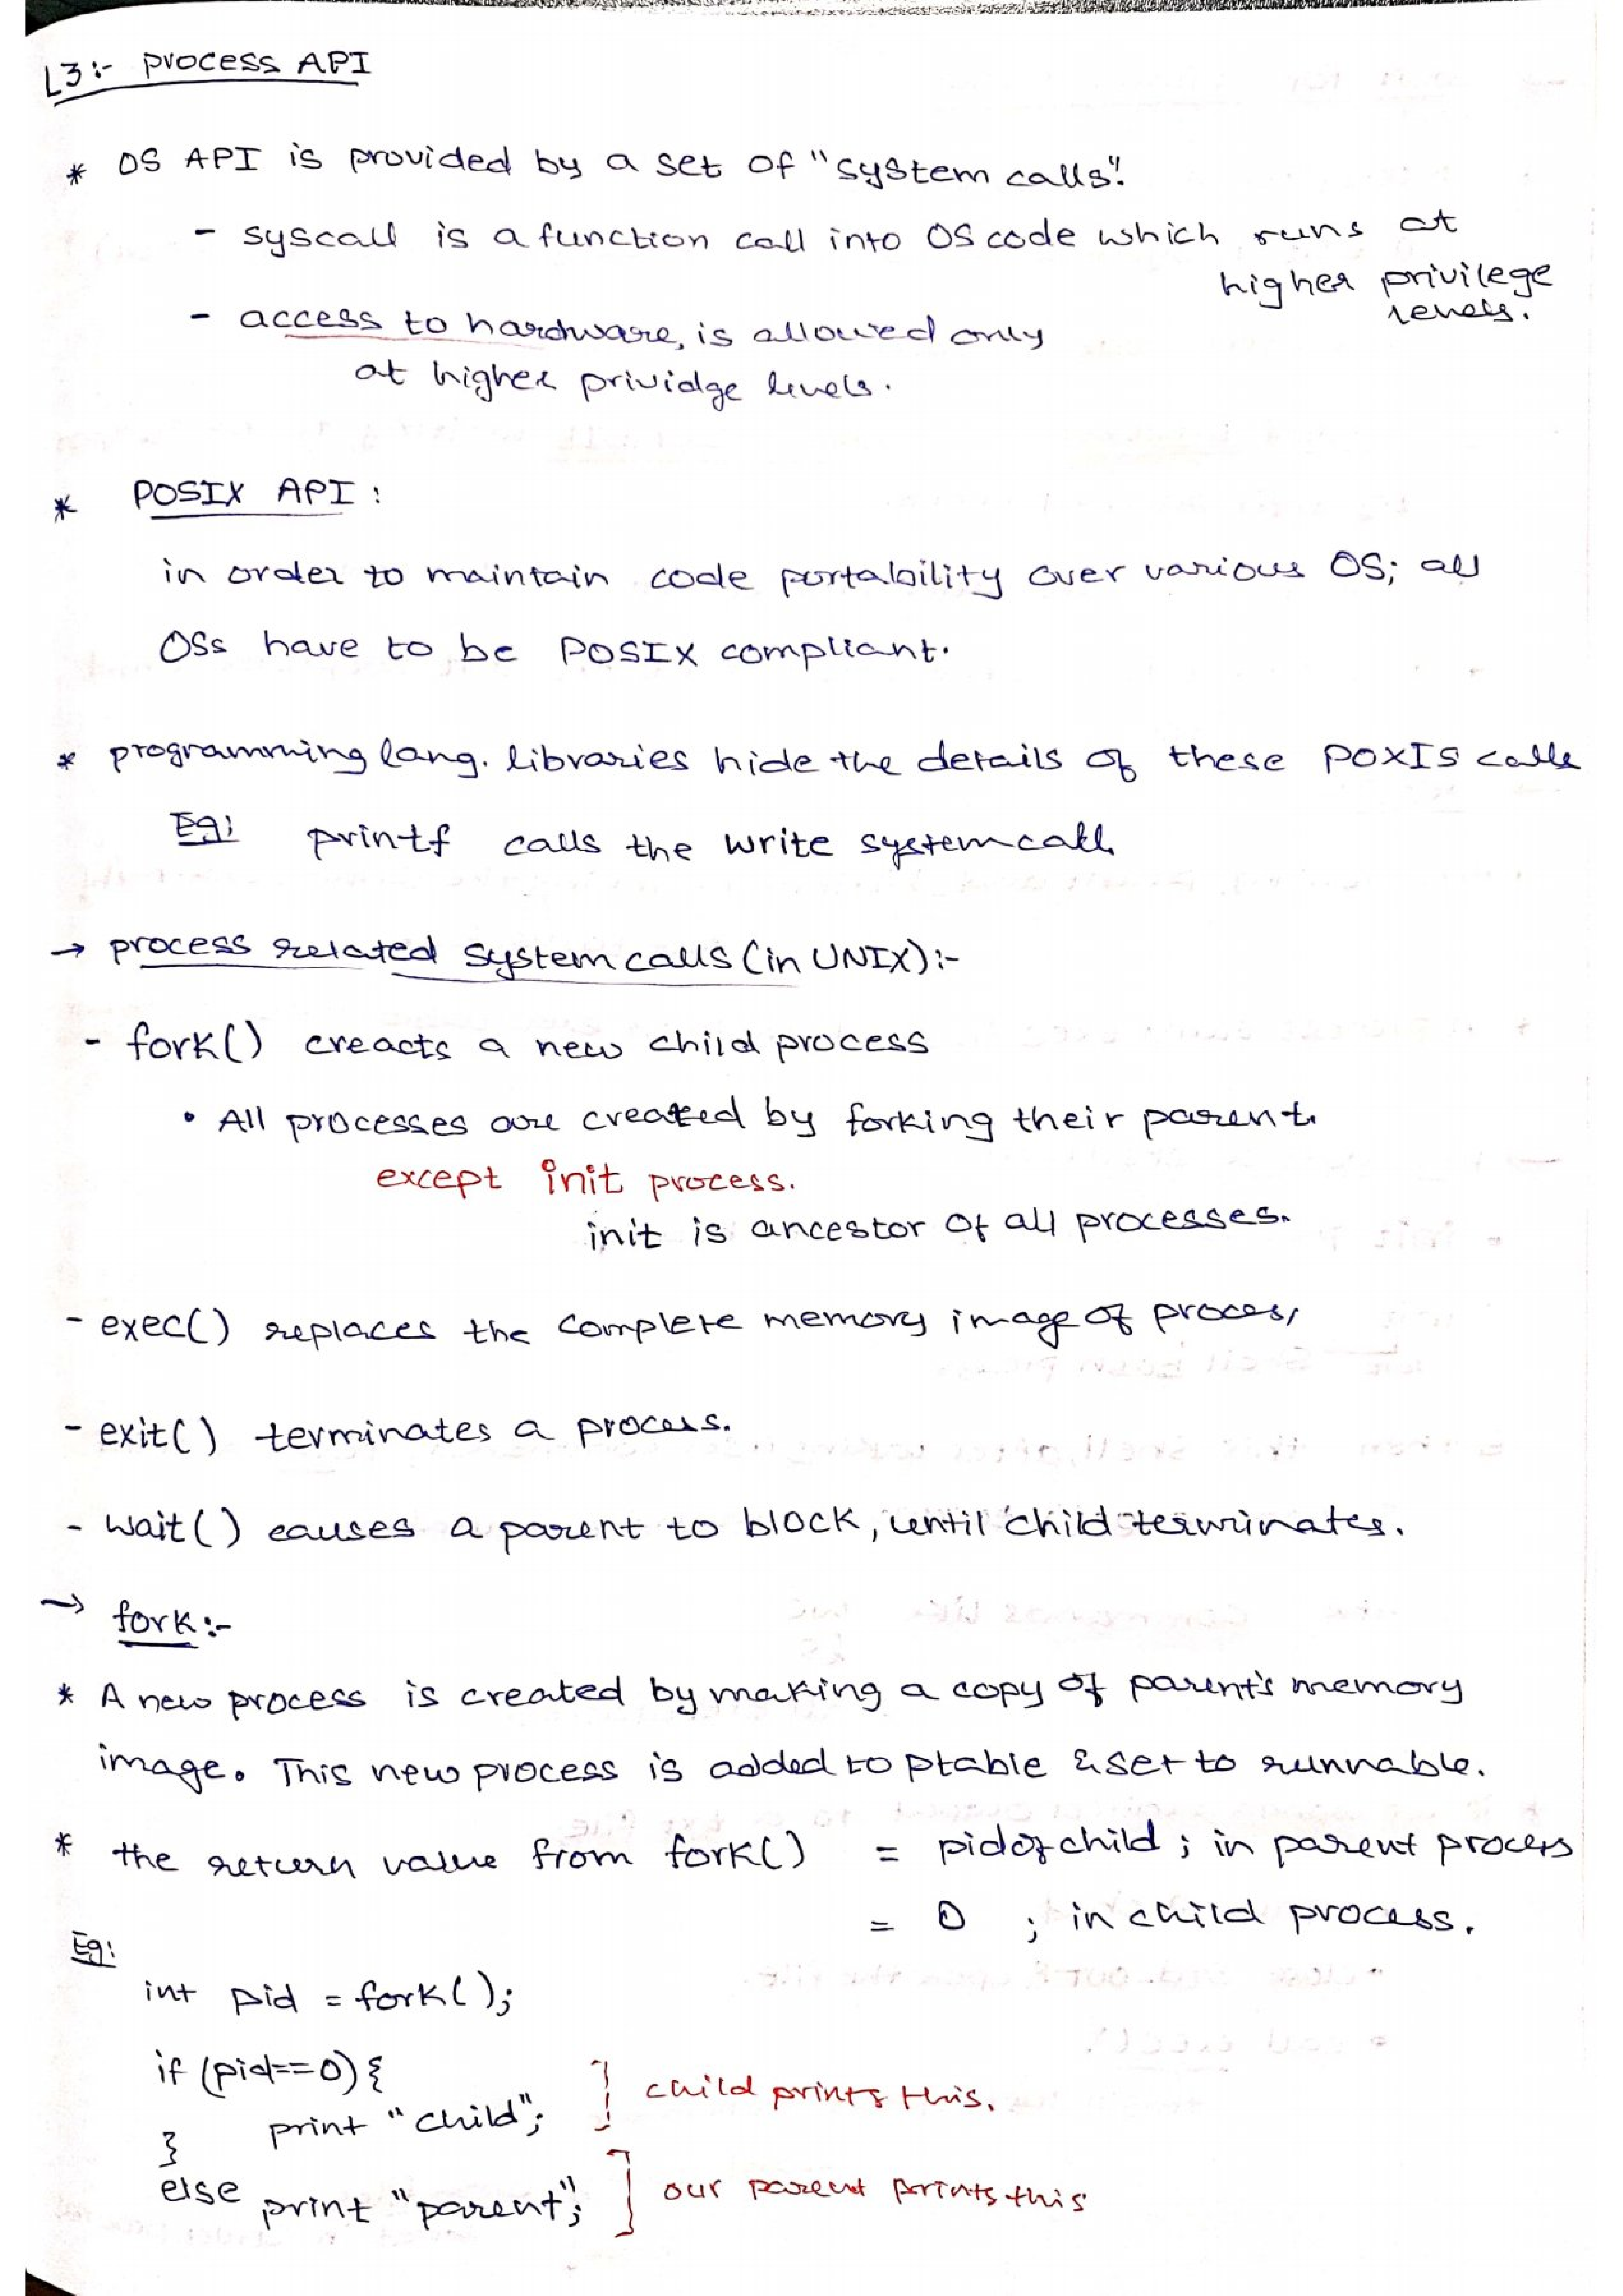 L3:- process API
* OS API is provided by a set of "system calls".
- syscall is a function call into OS code which runs at
higher privilege
levels.
- access to hardware, is allowed only
at higher prividge levels.
* POSIX API :
in order to maintain code portability over various OS; all
OSs have to be POSIX compliant.
* programming lang. libraries hide the details of these POXIS calls
Eg: printf calls the write system call
→ process related system calls (in UNIX):-
- fork() creacts a new child process
• All processes are created by forking their parent.
except init process.
init is ancestor of all processes.
- exec() replaces the complete memory image of process
- exit() terminates a process.
- wait() causes a parent to block, until child terminates.
→ fork:-
* A new process is created by making a copy of parent's memory
image. This new process is added to ptable & set to runnable.
* the return value from fork() = pid of child ; in parent process
= 0 ; in child process.
Eg:
int pid = fork();
if (pid==0) {
print "child"; } child prints this.
}
else print "parent"; ] our parent prints this